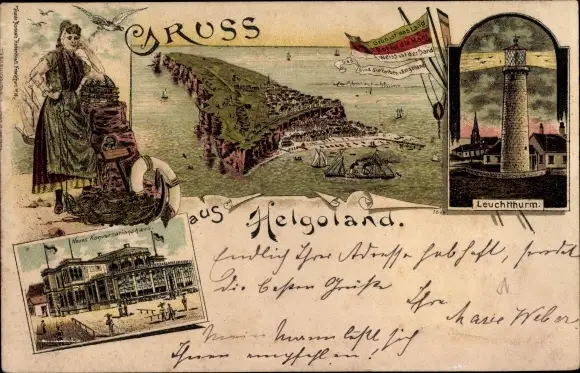 Gruss
Grün ist das Land,
Rot ist die Kant,
Weiss ist der Sand
Das sind die Farben von Helgoland
Leuchtthurm.
aus Helgoland.
Neues Konversationshaus
Endlich Ihre Adresse habhaft, sendet
die besten Grüße
Ihre
Marie Weber
Mein Mann läßt sich
Ihnen empfehlen!